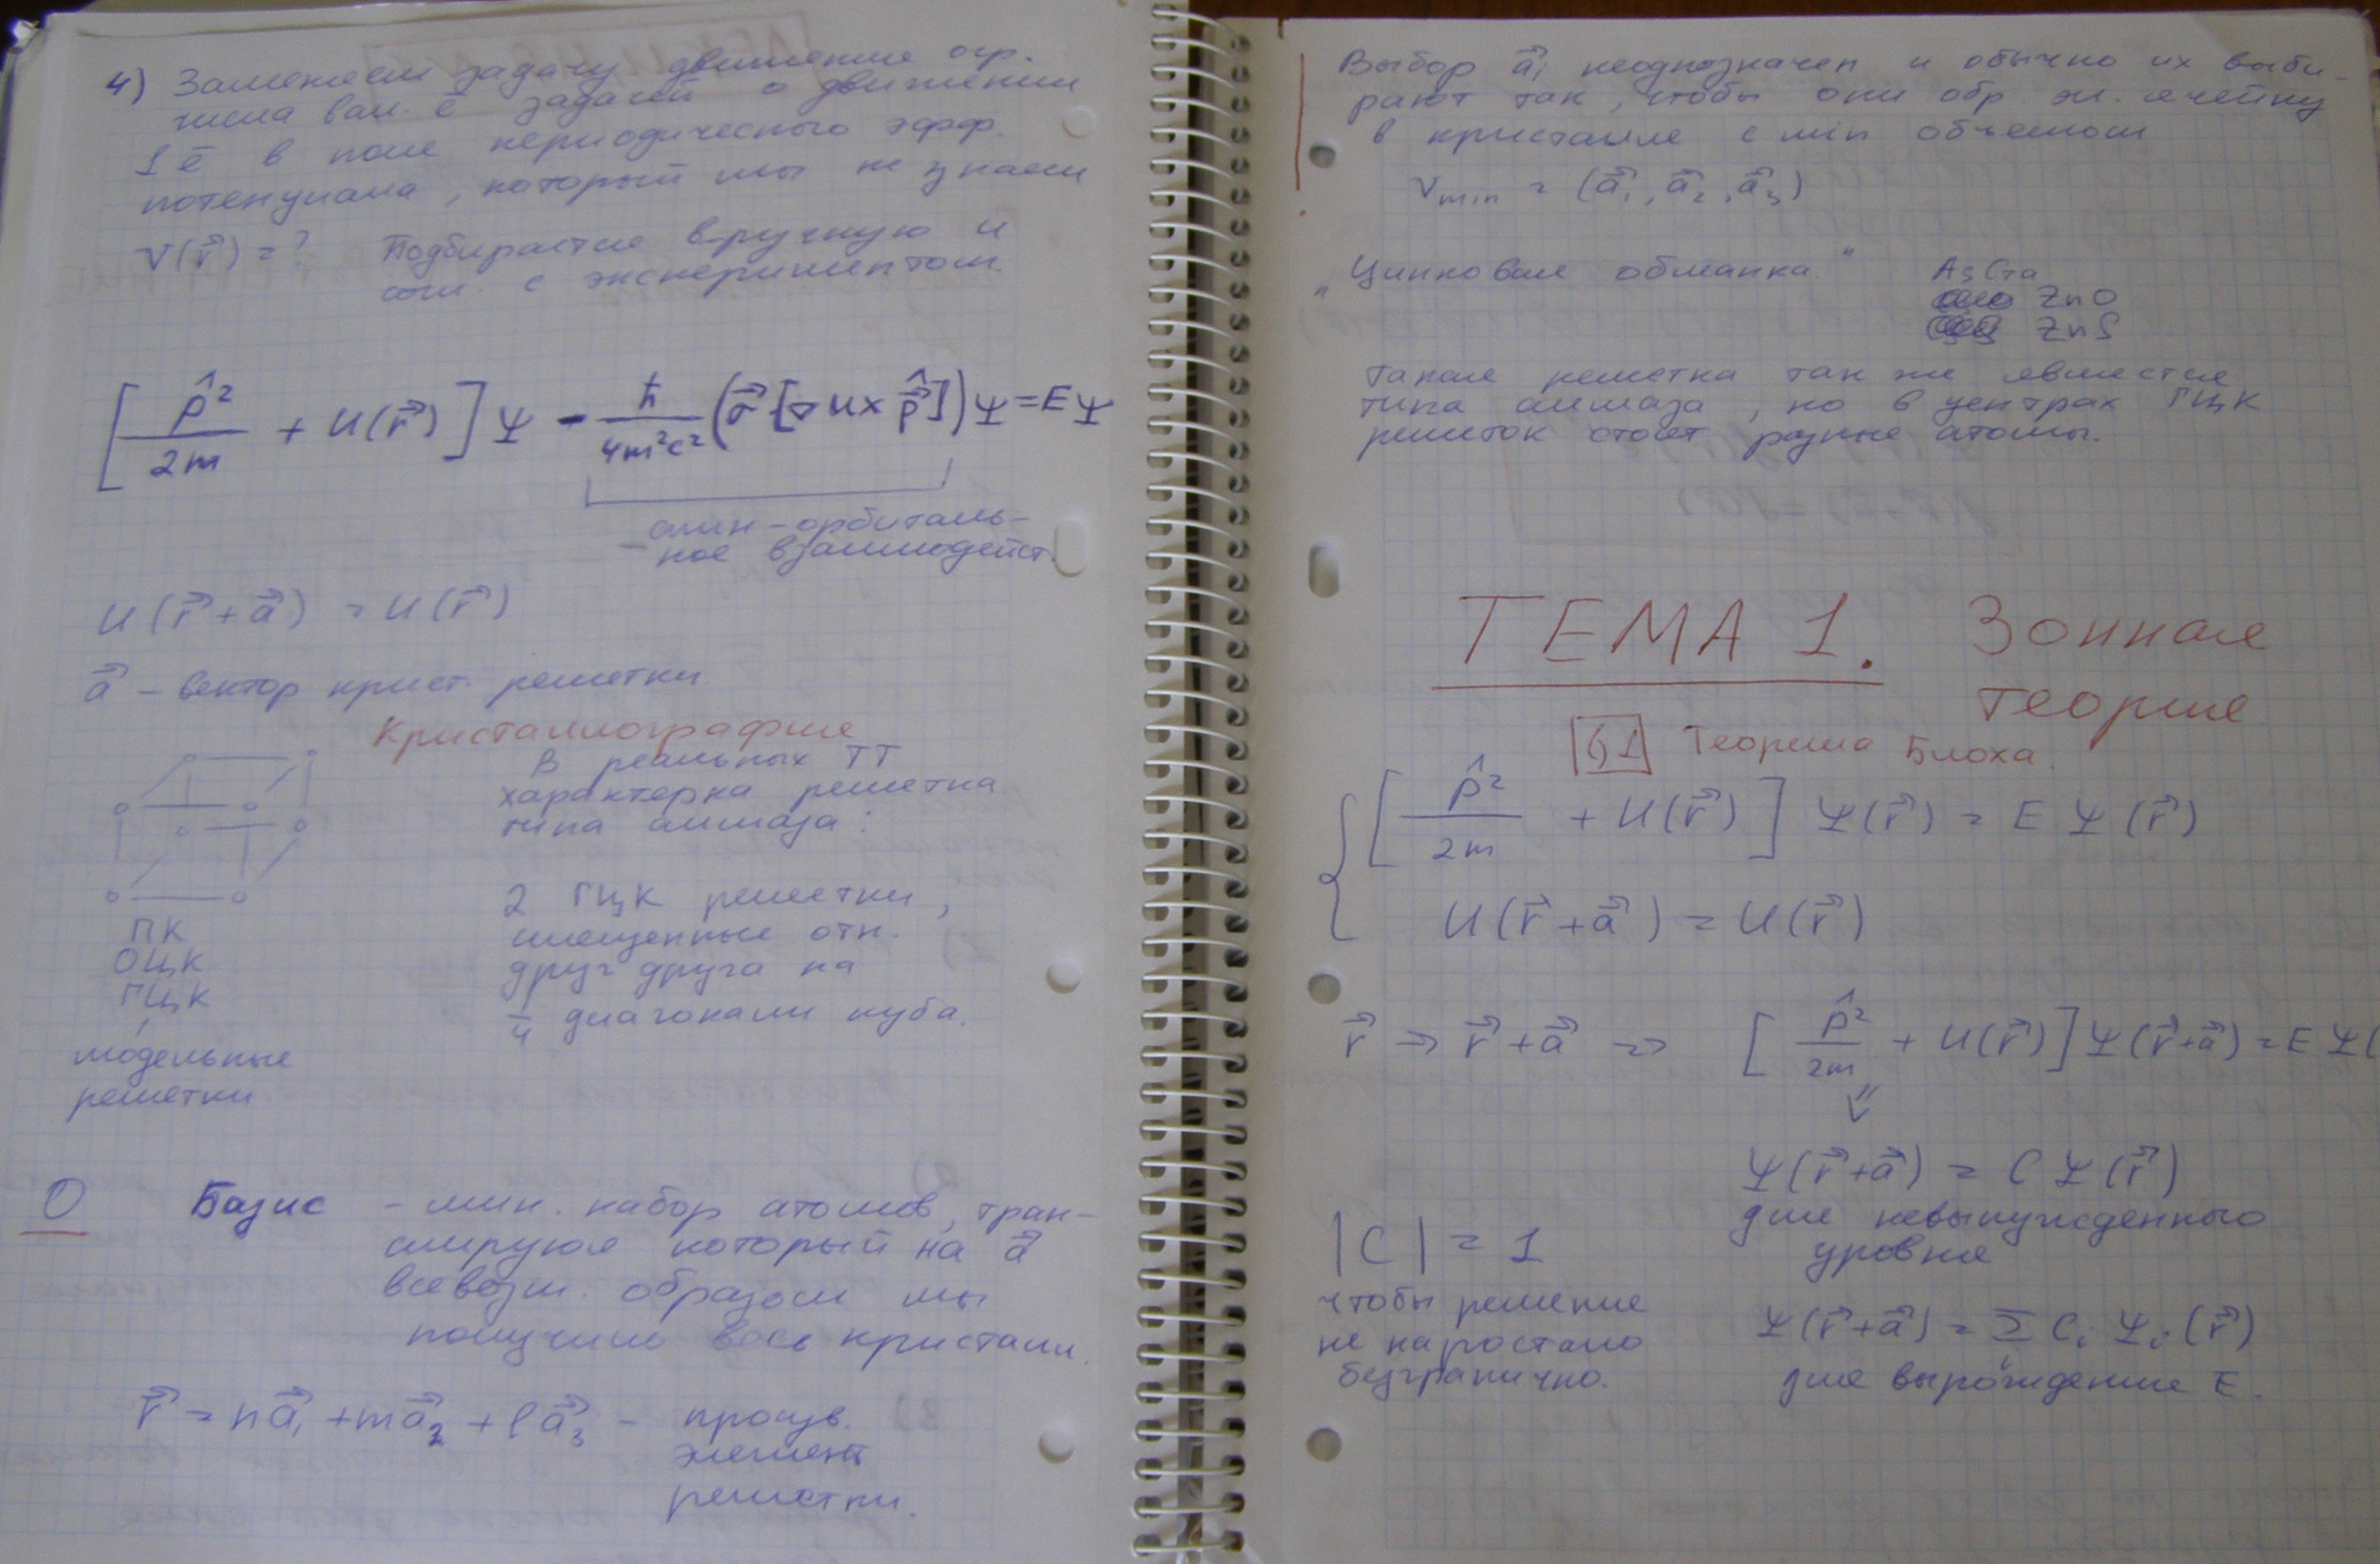 4) Заменяем задачу движение огр.
числа вал. ē задачей о движении
1 ē в поле периодического эфф.
потенциала, который мы не знаем
V(r⃗) = ? Подбирается в-ручную и
с экспериментом.
[p̂²/2m + U(r⃗)] Ψ - ħ/4m²c² (σ⃗ [∇U × p̂⃗]) Ψ = EΨ
спин-орбиталь-
-ное взаимодейст.
U(r⃗ + a⃗) = U(r⃗)
a⃗ - вектор крист. решетки
Кристаллография
В реальных ТТ
характерна решетка
типа алмаза:
2 ГЦК решетки,
смещенные отн.
друг друга на
1/4 диагонали куба.
ПК
ОЦК
ГЦК
модельные
решетки
O Базис - мин. набор атомов, тран-
слируя который на a⃗
всевозм. образом мы
получим весь кристалл.
r⃗ = na⃗₁ + ma⃗₂ + la⃗₃ -
элемент
решетки.
Выбор a⃗ᵢ неоднозначен и обычно их выби-
рают так, чтобы они обр эл. ячейку
в кристалле с min объемом
Vmin = (a⃗₁, a⃗₂, a⃗₃)
"Цинковая обманка" AsGa
ZnO
ZnS
Такая решетка так же является
типа алмаза, но в центрах ГЦК
решеток стоят разные атомы.
ТЕМА 1. Зонная
теория
§1 Теорема Блоха.
[p̂²/2m + U(r⃗)] Ψ(r⃗) = E Ψ(r⃗)
U(r⃗ + a⃗) = U(r⃗)
r⃗ → r⃗ + a⃗ => [p̂²/2m + U(r⃗)] Ψ(r⃗+a⃗) = E Ψ(
Ψ(r⃗+a⃗) = C Ψ(r⃗)
для невынужденного
уровня
|C| = 1
чтобы решение
не наростало
безгранично.
Ψ(r⃗+a⃗) = Σ Cᵢ Ψᵢ(r⃗)
i
для вырождение E.